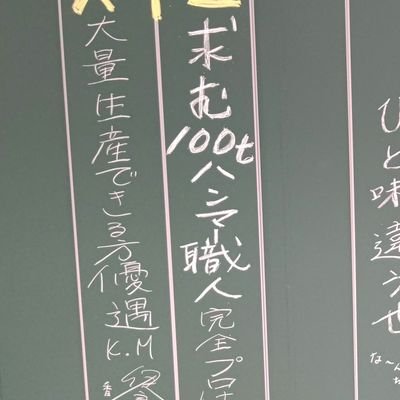 ひと味違う也
な〜ん
求む100tハンマー職人完全プロ
大量生産できる方優遇 K.M